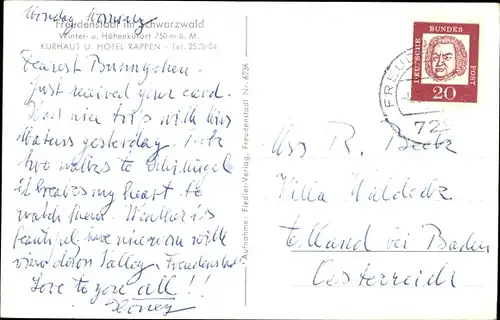 Monday Morning
Freudenstadt im Schwarzwald
Winter- u. Höhenkurort 750 m ü. M.
KURHAUS U. HOTEL RAPPEN - Tel. 2503/04
Dearest Bunnychen.
Just received your card.
Had nice trip with
yesterday.
two walks to
it breaks my heart to
watch them. Weather is
beautiful, have nice room with
view down Valley Freudenstadt
Love to you all!!
Aufnahme: Fiedler-Verlag, Freudenstadt Nr. 6236
DEUTSCHE BUNDESPOST
20
FREUD
72
R. Beck
Villa Waldeck
bei Baden
Oesterreich